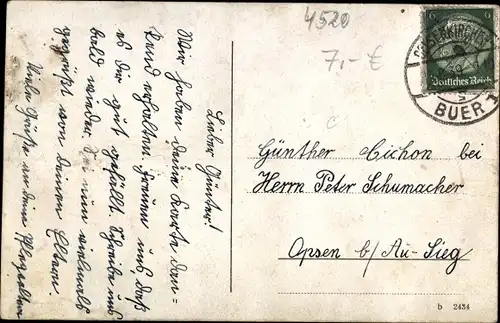 Lieber Günter!
Wir haben deine Karte dan-
kend erhalten. Freuen uns daß
es dir gut gefällt. Schreibe uns
bald wieder. Sei nun vielmals
gegrüßt von deinen Eltern.
Viele Grüße an deine Pflegeeltern
4520
7,- €
6
Deutsches Reich
GELSENKIRCHEN
BUER 1
Günther Cichon bei
Herrn Peter Schumacher
Opsen b/Au-Sieg
b 2434